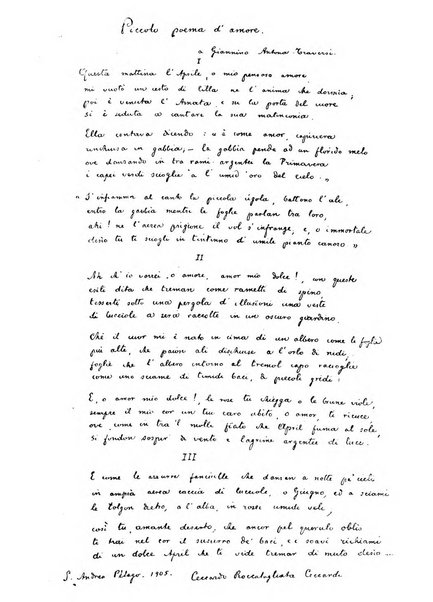 Piccolo poema d' amore.
a Giannino Antona Traversi.
I
Questa mattina l'Aprile, o mio pensoso amore,
mi vuotò un cesto di lilla ne l'anima che dormia;
poi è venuta l'Amata e su la porta del cuore
si è seduta a cantare la sua malinconia.
Ella cantava dicendo: « è come amor, capinera
inchiusa in gabbia; — la gabbia pende ad un florido melo
ove danzando in tra rami argentei la Primavera
i capei verdi scioglie a l'umid' oro del cielo. »
« S'infiamma al canto la piccola ugola, battono l'ale,
entro la gabbia mentre le foglie parlan tra loro,
ahi! ne l'aerea prigione il vol s'infrange, e, o immortale
desio tu ti sciogli in l'intinno d'umile pianto canoro. »
II
Ah ch'io vorrei, o amore, amor mio dolce!, con queste
esili dita che treman come rametti di spino
tesserti sotto una pergola d'illusioni una veste
di lucciole a sera raccolte in un oscuro giardino.
Chè il cuor mi è nato in cima di un albero come le foglie
più alte, che paion ali dischiuse a l'orlo di nidi,
foglie che l'albero intorno al tremol capo raccoglie
come uno sciame di timidi baci, di piccoli gridi!
E, o amor mio dolce!, le rose tu chiegga o le brune viole,
sempre il mio cor in tuo caro cibito, o amor, ti riduce
ove come in tra 'l molle fiato che l'April fuma al sole,
si fondon sospir' di vento e lagrime argentee di luce.
III
E come le azzurre fanciulle che danzan a notte pe' cieli
in ampia aerea caccia di lucciole, o Giugno, ed a sciami
le tolgon dietro, a l'alba, in rossi umidi veli,
così tu, amante deserto, che ancor pel querulo oblio
ti trai nel cor il susurro de' baci, e i soavi richiami
di un dolce April che ti vide tremar di muto desio ...
S. Andrea Pelago. 1905. Ceccardo Roccatagliata Ceccardi.